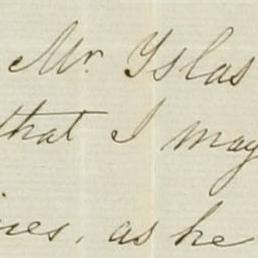 Mr. Yslas
that I may
as he